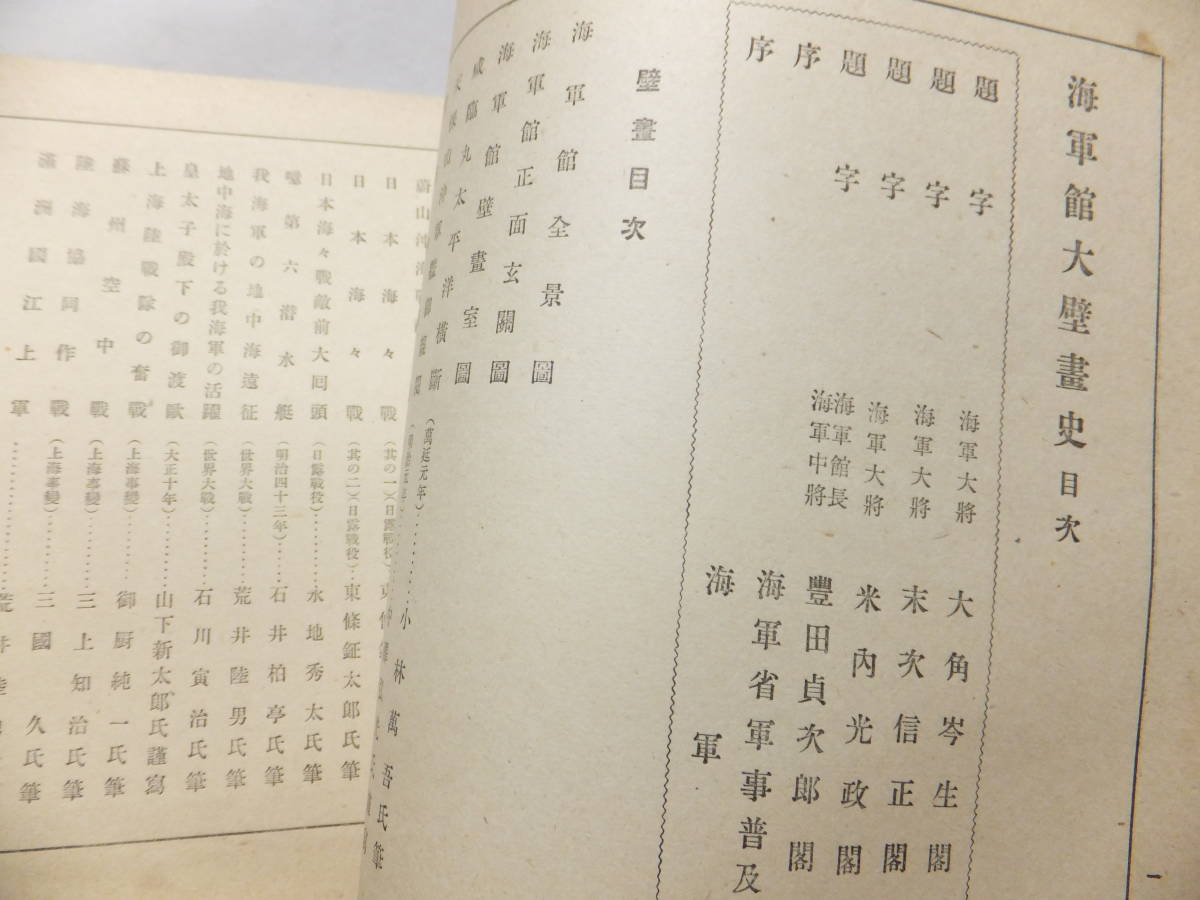 海軍館大壁畫史目次
題字 海軍大將 大角岑生閣
題字 海軍大將 末次信正閣
題字 海軍大將 米內光政閣
題字 海軍館長海軍中將 豐田貞次郎閣
序 海軍省軍事普及
序 海軍
壁畫目次
海軍館全景圖
海軍館正面玄關圖
海軍館壁畫室圖
咸臨丸太平洋橫斷（萬延元年）………小林萬吾氏筆
日本海々戰（其の一）（日露戰役）
日本海々戰（其の二）（日露戰役）…東條鉦太郎氏筆
日本海々戰敵前大囘頭（日露戰役）……永地秀太氏筆
噫第六潜水艇（明治四十三年）……石井柏亭氏筆
我海軍の地中海遠征（世界大戰）……荒井陸男氏筆
地中海に於ける我海軍の活躍（世界大戰）……石川寅治氏筆
皇太子殿下の御渡歐（大正十年）……山下新太郎氏謹寫
上海陸戰隊の奮戰（上海事變）……御厨純一氏筆
蘇州空中戰（上海事變）……三上知治氏筆
陸海協同作戰（上海事變）……三國久氏筆
滿洲國江上軍